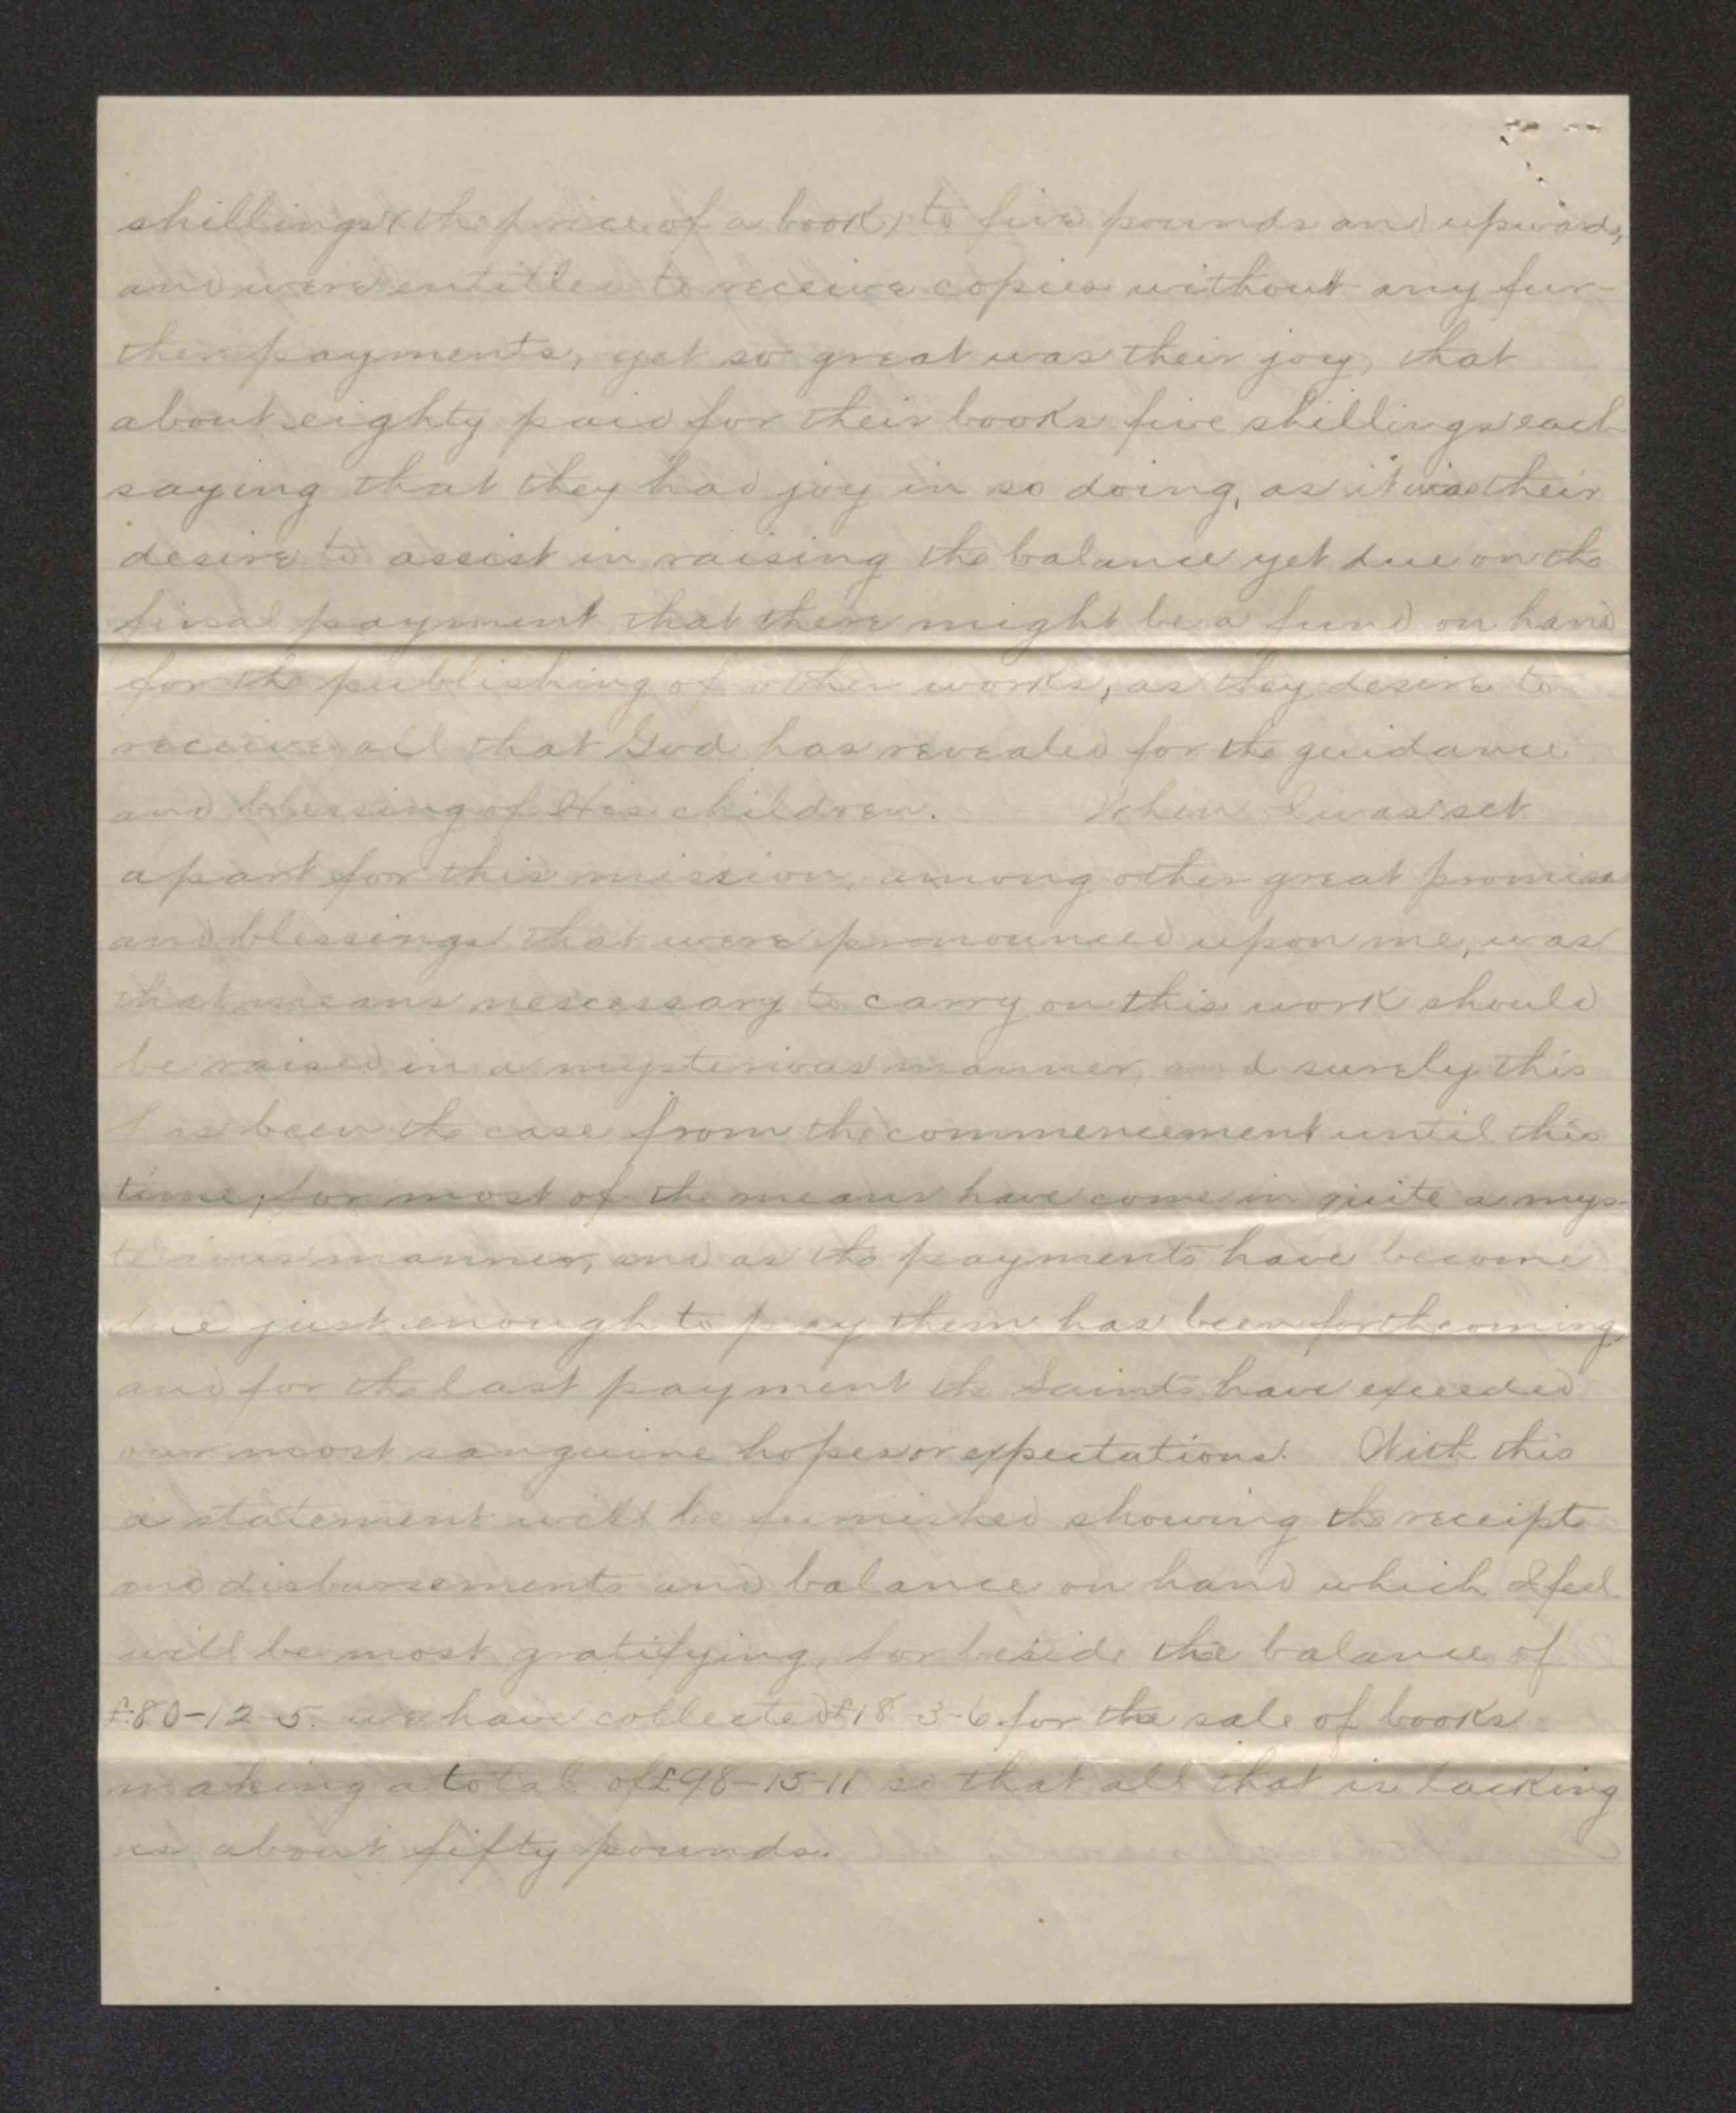 shillings (the price of a book) to five pounds and upwards,
and were entitled to receive copies without any fur-
ther payments, yet so great was their joy, that
about eighty paid for their books five shillings each
saying that they had joy in so doing, as it was their
desire to assist in raising the balance yet due on the
final payment that there might be a fund on hand
for the publishing of other works, as they desire to
receive all that God has revealed for the guidance
and blessing of His children. When I was set
apart for this mission, among other great promises
and blessings that were pronounced upon me, was
that means nescessary to carry on this work should
be raised in a mysterious manner, and surely this
has been the case from the commencement until this
time, for most of the means have come in quite a mys-
terious manner, and as the payments have become
due just enough to pay them has been forthcoming,
and for the last payment the Saints have exceeded
our most sanguine hopes or expectations. With this
a statement will be furnished showing the receipts
and disbursements and balance on hand which I feel
will be most gratifying, for beside the balance of
£80-12-5. we have collected £18-3-6 for the sale of books
making a total of £98-15-11 so that all that is lacking
is about fifty pounds.